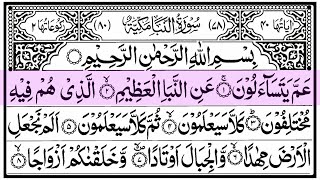 اٰیاتها ٤٠ (٧٨) سُوْرَةُ النَّبَاِ مَكِّيَّةٌ (٨٠) رکوعاتها ٢
بِسْمِ اللّٰهِ الرَّحْمٰنِ الرَّحِيْمِ
عَمَّ يَتَسَآءَلُوْنَ ۝١ عَنِ النَّبَاِ الْعَظِيْمِ ۝٢ الَّذِىْ هُمْ فِيْهِ
مُخْتَلِفُوْنَ ۝٣ كَلَّا سَيَعْلَمُوْنَ ۝٤ ثُمَّ كَلَّا سَيَعْلَمُوْنَ ۝٥ اَلَمْ نَجْعَلِ
الْاَرْضَ مِهٰدًا ۝٦ وَّالْجِبَالَ اَوْتَادًا ۝٧ وَّخَلَقْنٰكُمْ اَزْوَاجًا ۝٨